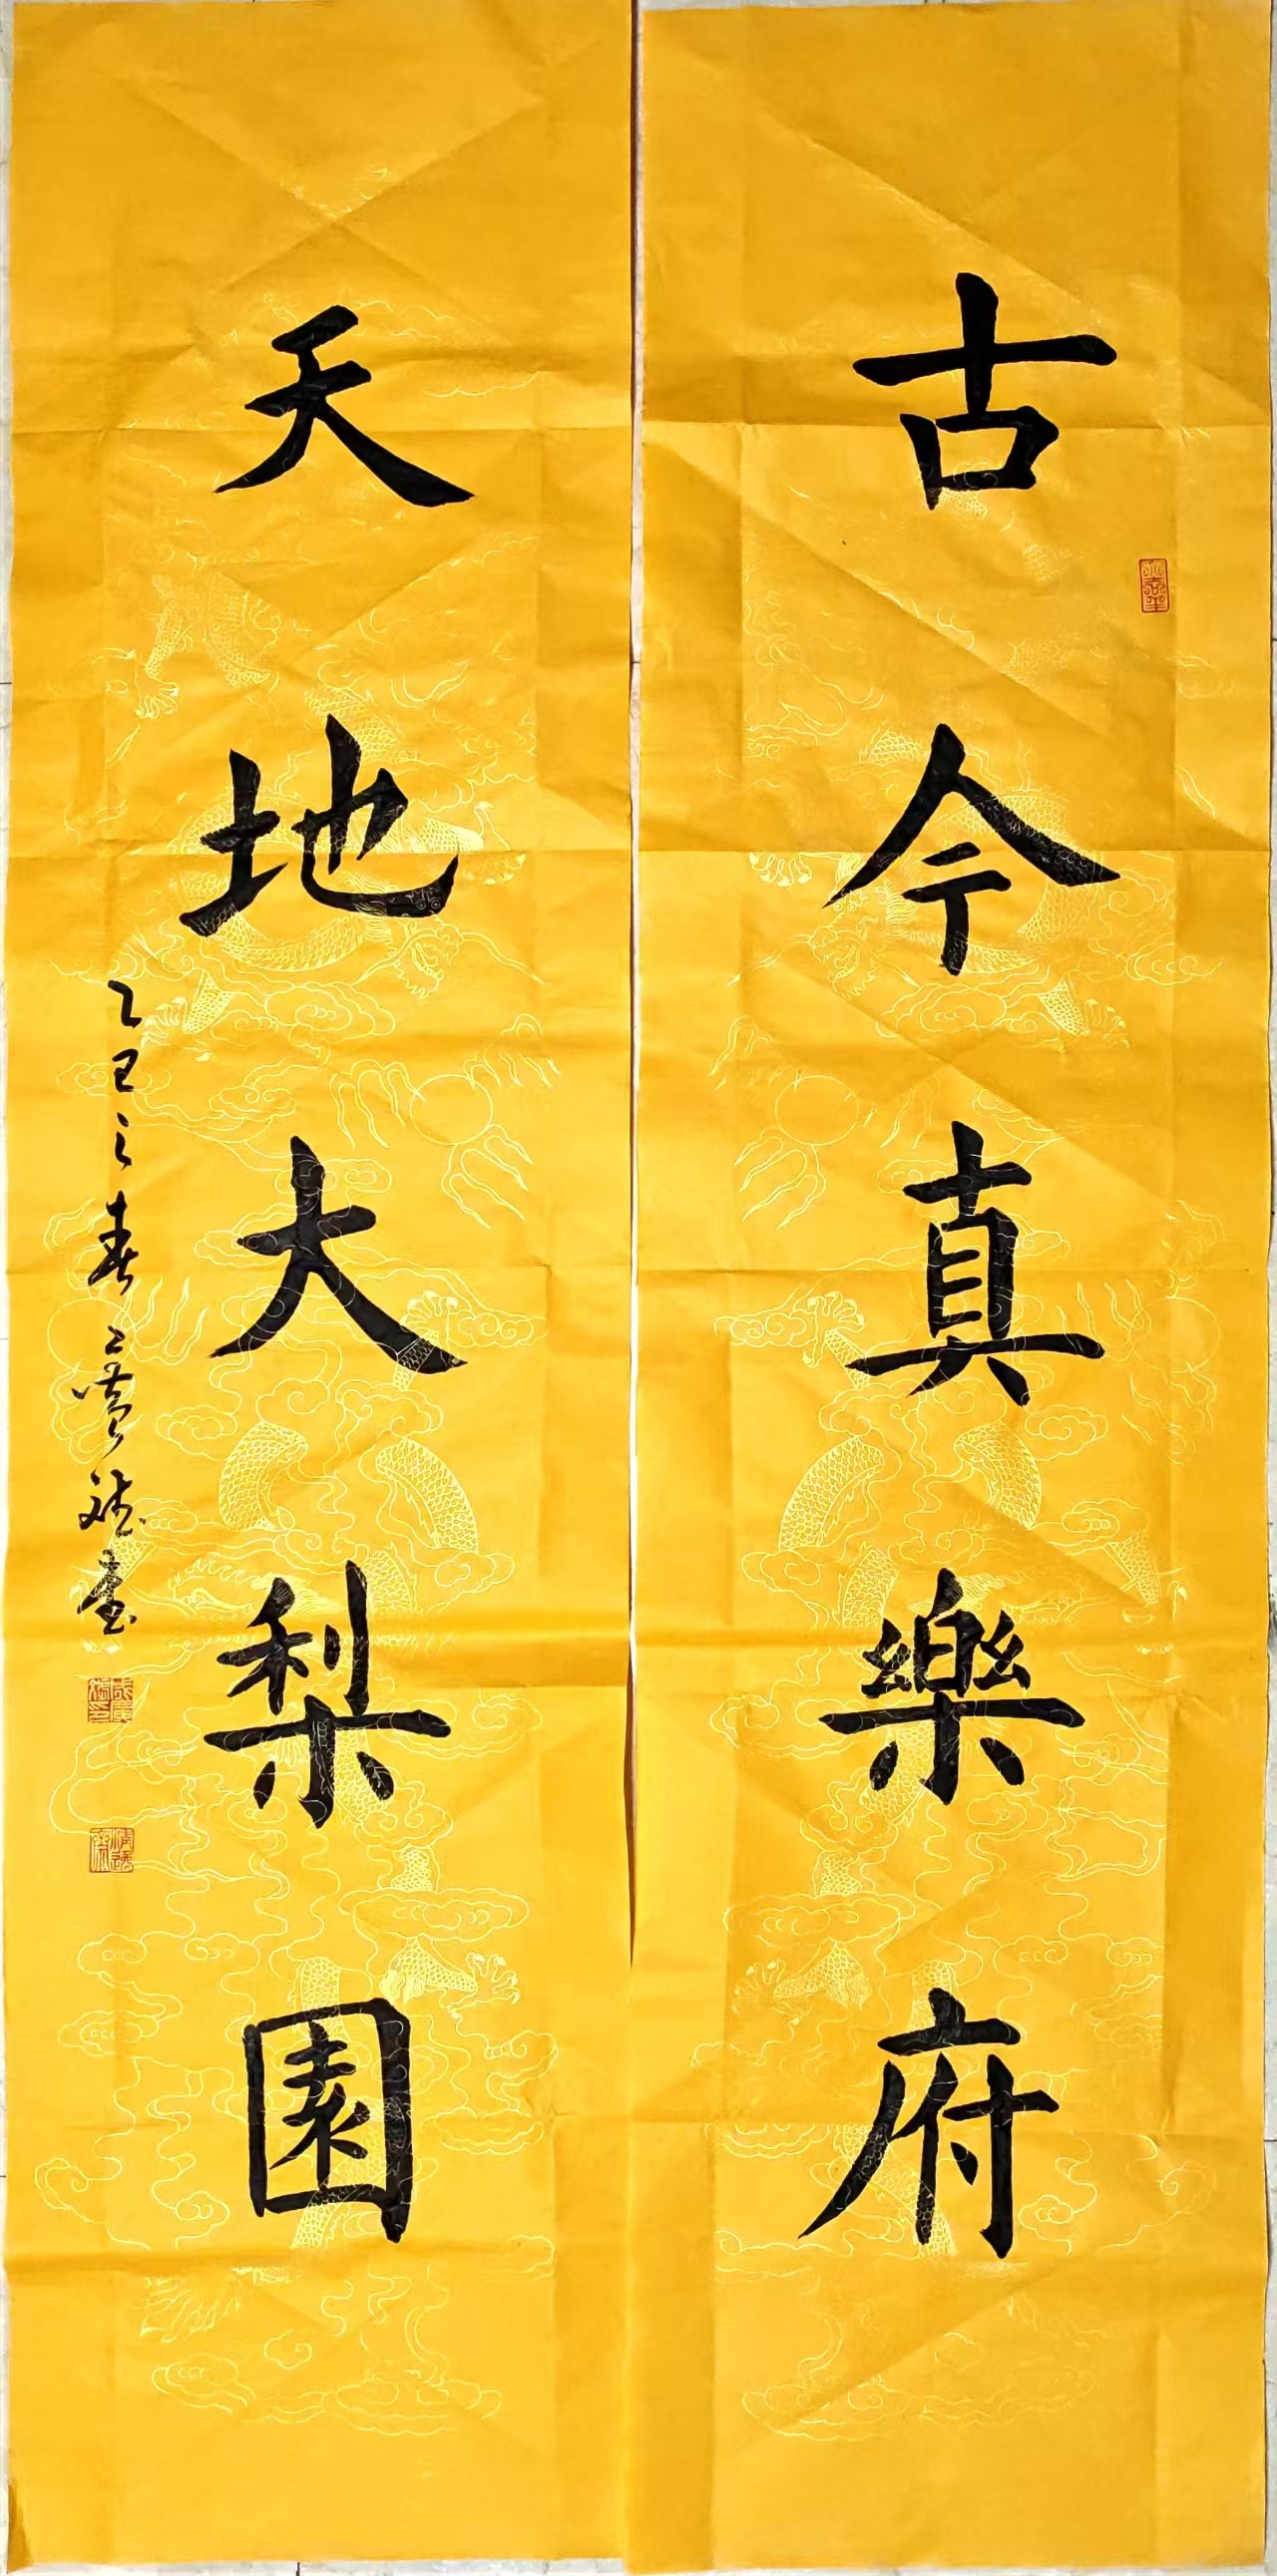 古今真樂府
天地大梨園
乙巳之春